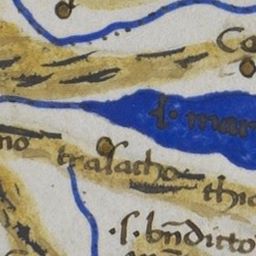 Co
l· mar
no
tralacho
thic
·s· bn̄dicto